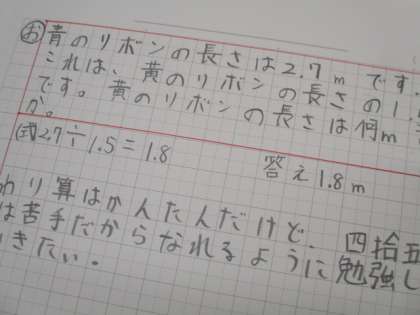 お 青のリボンの長さは2.7mです。
これは、黄のリボンの長さの1.
です。黄のリボンの長さは何m
か。
(式)2.7÷1.5=1.8
答え1.8m
わり算はかんたんだけど、四捨五
は苦手だからなれるように勉強し
いきたい。